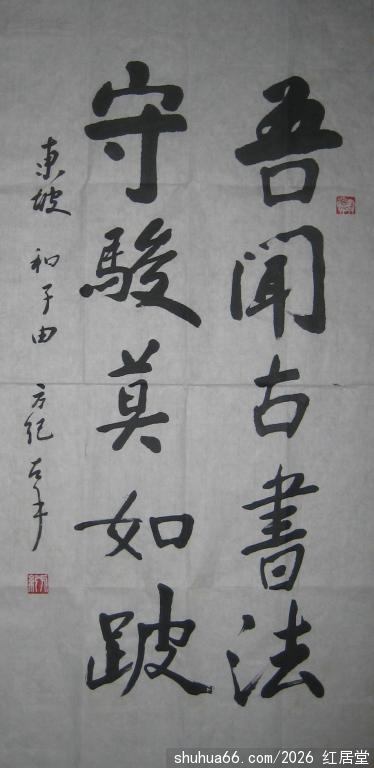 吾聞古書法
守駿莫如跛
東坡 和子由 方纪左手
shuhua66.com/2026 红居堂